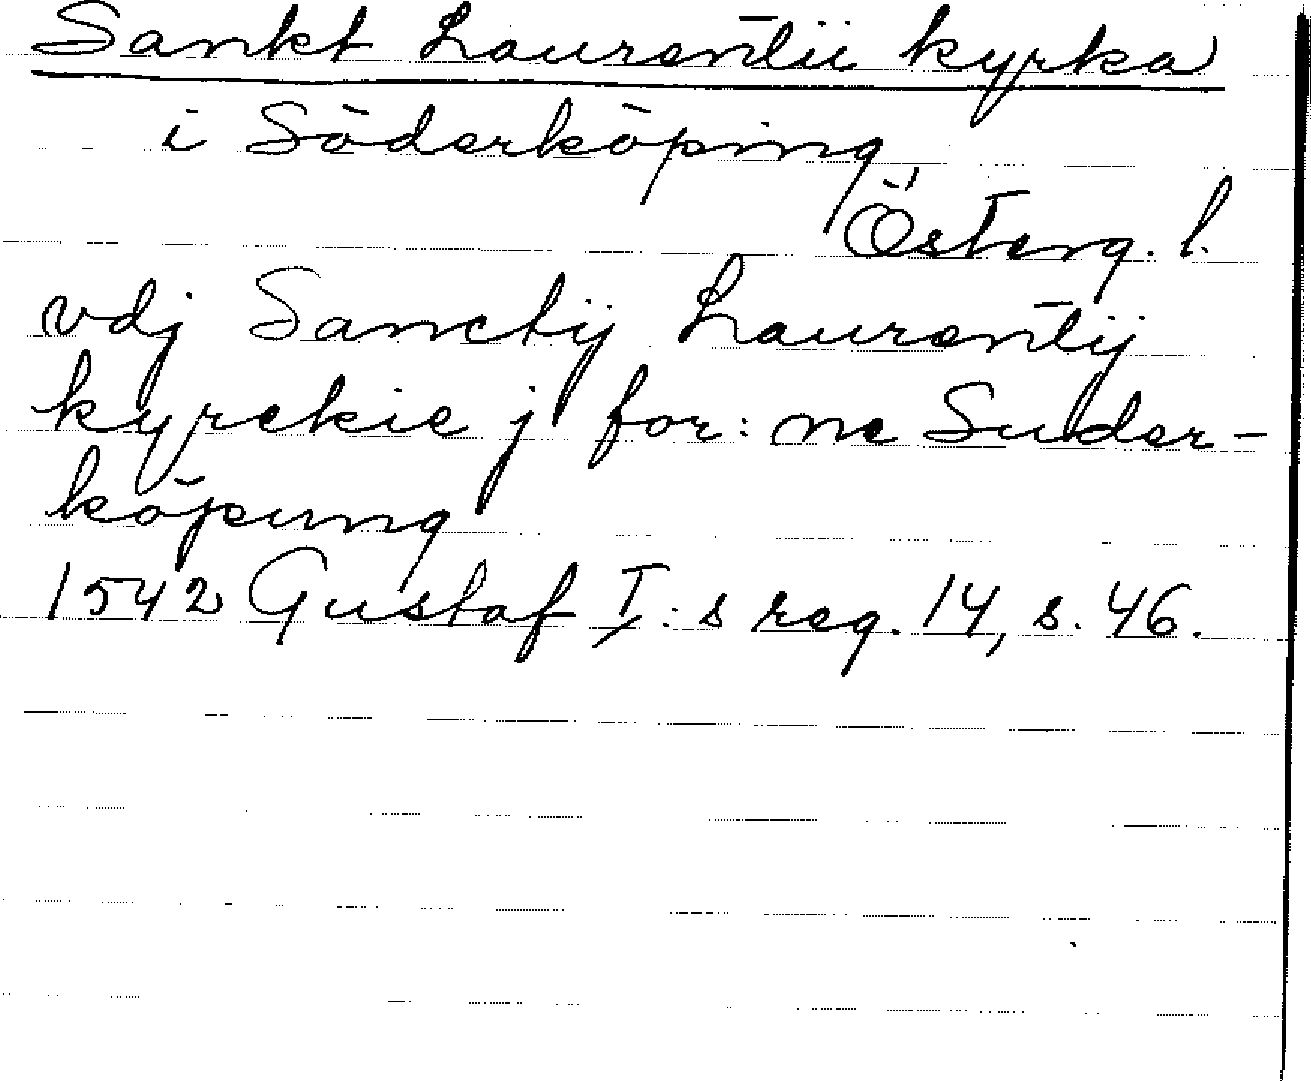 Sankt Laurentii kyrka
i Söderköping
Österg. l.
vdj Sanctij Laurentij
kyrckie j for: ne Suder-
köpung
1542 Gustaf I: s reg. 14, s. 46.